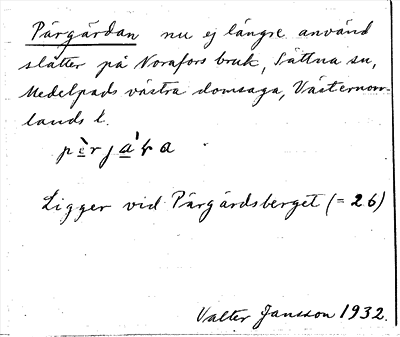 Pärgärdan nu ej längre använd
slåtter på Norafors bruk, Sättna sn,
Medelpads västra domsaga, Västernorr-
lands l.
Ligger vid Pärgärdsberget (= 26)
Valter Jansson 1932.